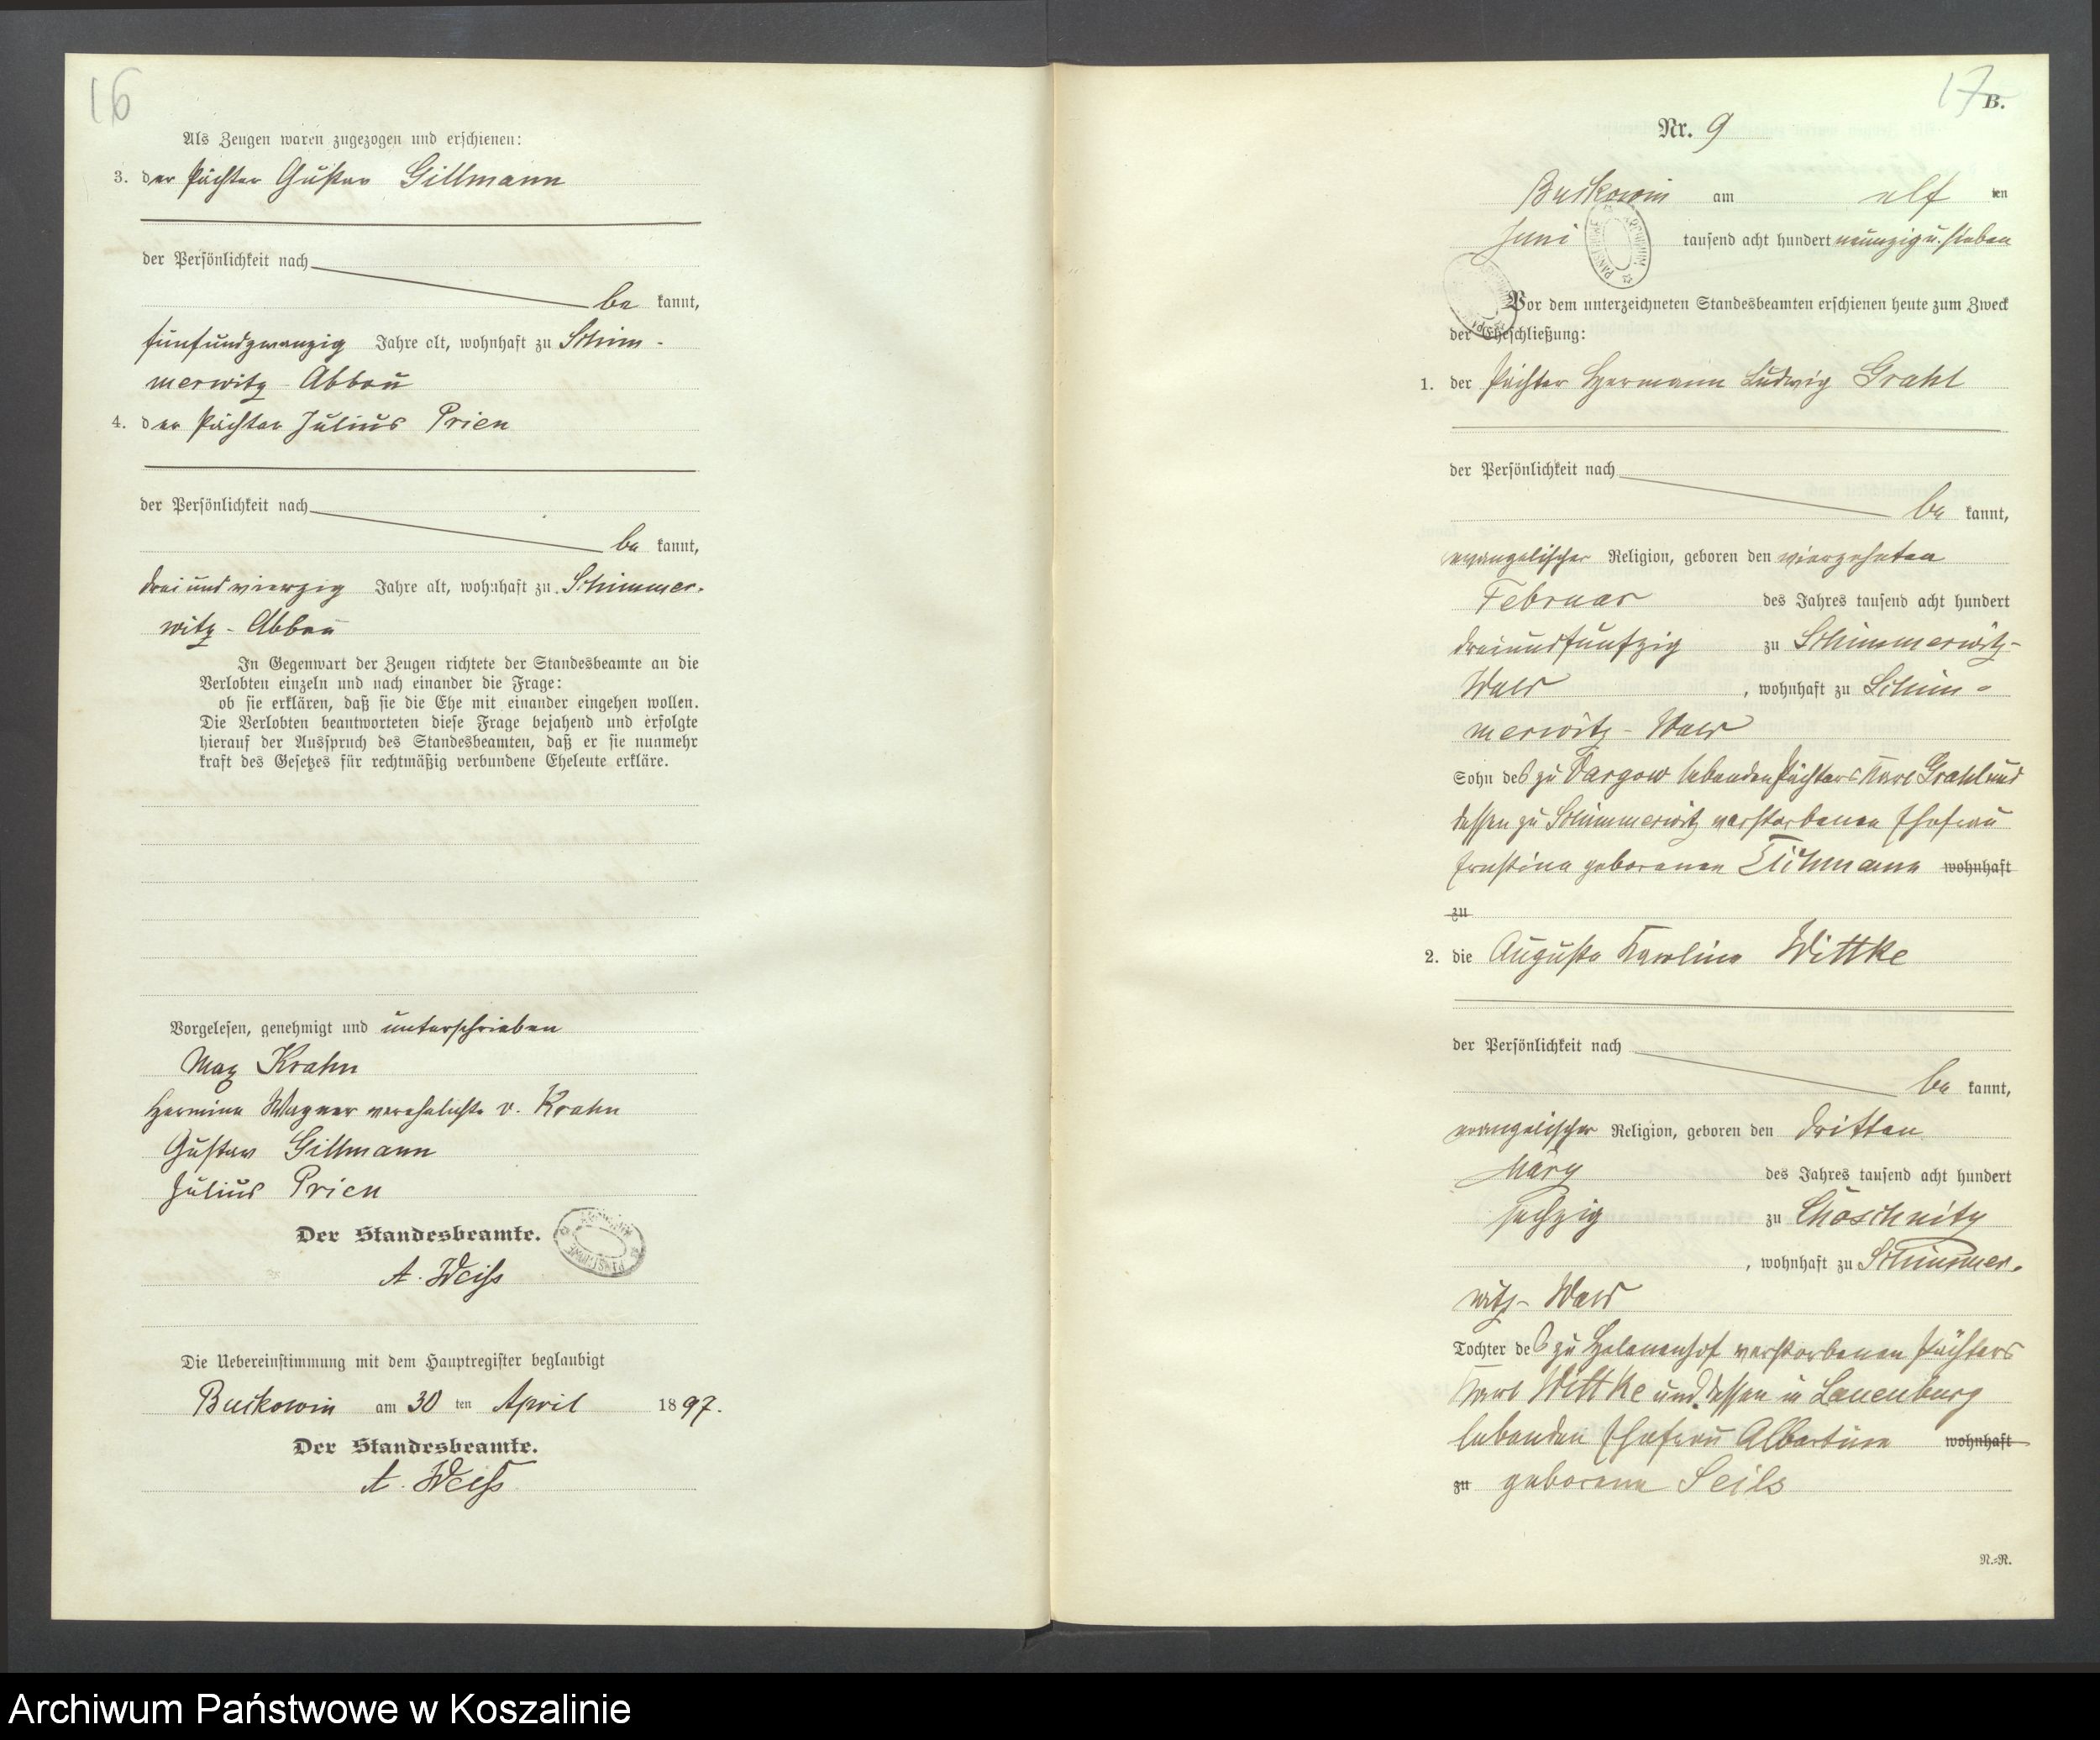 16
Als Zeugen waren zugezogen und erschienen:
3. der Pächter Gustav Gillmann
der Persönlichkeit nach
be kannt,
fünfundzwanzig Jahre alt, wohnhaft zu Schim-
merwitz - Abbau
4. der Pächter Julius Prien
der Persönlichkeit nach
be kannt,
dreiundvierzig Jahre alt, wohnhaft zu Schimmer-
witz - Abbau
In Gegenwart der Zeugen richtete der Standesbeamte an die
Verlobten einzeln und nach einander die Frage:
ob sie erklären, daß sie die Ehe mit einander eingehen wollen.
Die Verlobten beantworteten diese Frage bejahend und erfolgte
hierauf der Ausspruch des Standesbeamten, daß er sie nunmehr
kraft des Gesetzes für rechtmäßig verbundene Eheleute erkläre.
Vorgelesen, genehmigt und unterschrieben
Max Krahn
Hermine Wagner verehelichte v. Krahn
Gustav Gillmann
Julius Prien
Der Standesbeamte.
A. Weiß
Die Uebereinstimmung mit dem Hauptregister beglaubigt
Buckowin am 30 ten April 1897.
Der Standesbeamte.
A. Weiß
17
B.
Nr. 9
Buckowin am elf ten
Juni tausend acht hundert neunzig u. sieben
Vor dem unterzeichneten Standesbeamten erschienen heute zum Zweck
der Eheschließung:
1. der Pächter Hermann Ludwig Grahl
der Persönlichkeit nach
be kannt,
evangelischer Religion, geboren den vierzehnten
Februar des Jahres tausend acht hundert
dreiundfünfzig zu Schimmerwitz-
Wald, wohnhaft zu Schim-
merwitz - Wald
Sohn des zu Dargow lebenden Pächters Karl Grahl und
dessen zu Schimmerwitz verstorbenen Ehefrau
Ernstine geborenen Eichmann wohnhaft
zu
2. die Auguste Karoline Wittke
der Persönlichkeit nach
be kannt,
evangelischer Religion, geboren den dritten
März des Jahres tausend acht hundert
sechzig zu Choschnitz
, wohnhaft zu Schimmer-
witz - Wald
Tochter des zu Helenenhof verstorbenen Pächters
Karl Wittke und dessen in Lauenburg
lebenden Ehefrau Albertine wohnhaft
zu geborene Seils
N.-N.
Archiwum Państwowe w Koszalinie